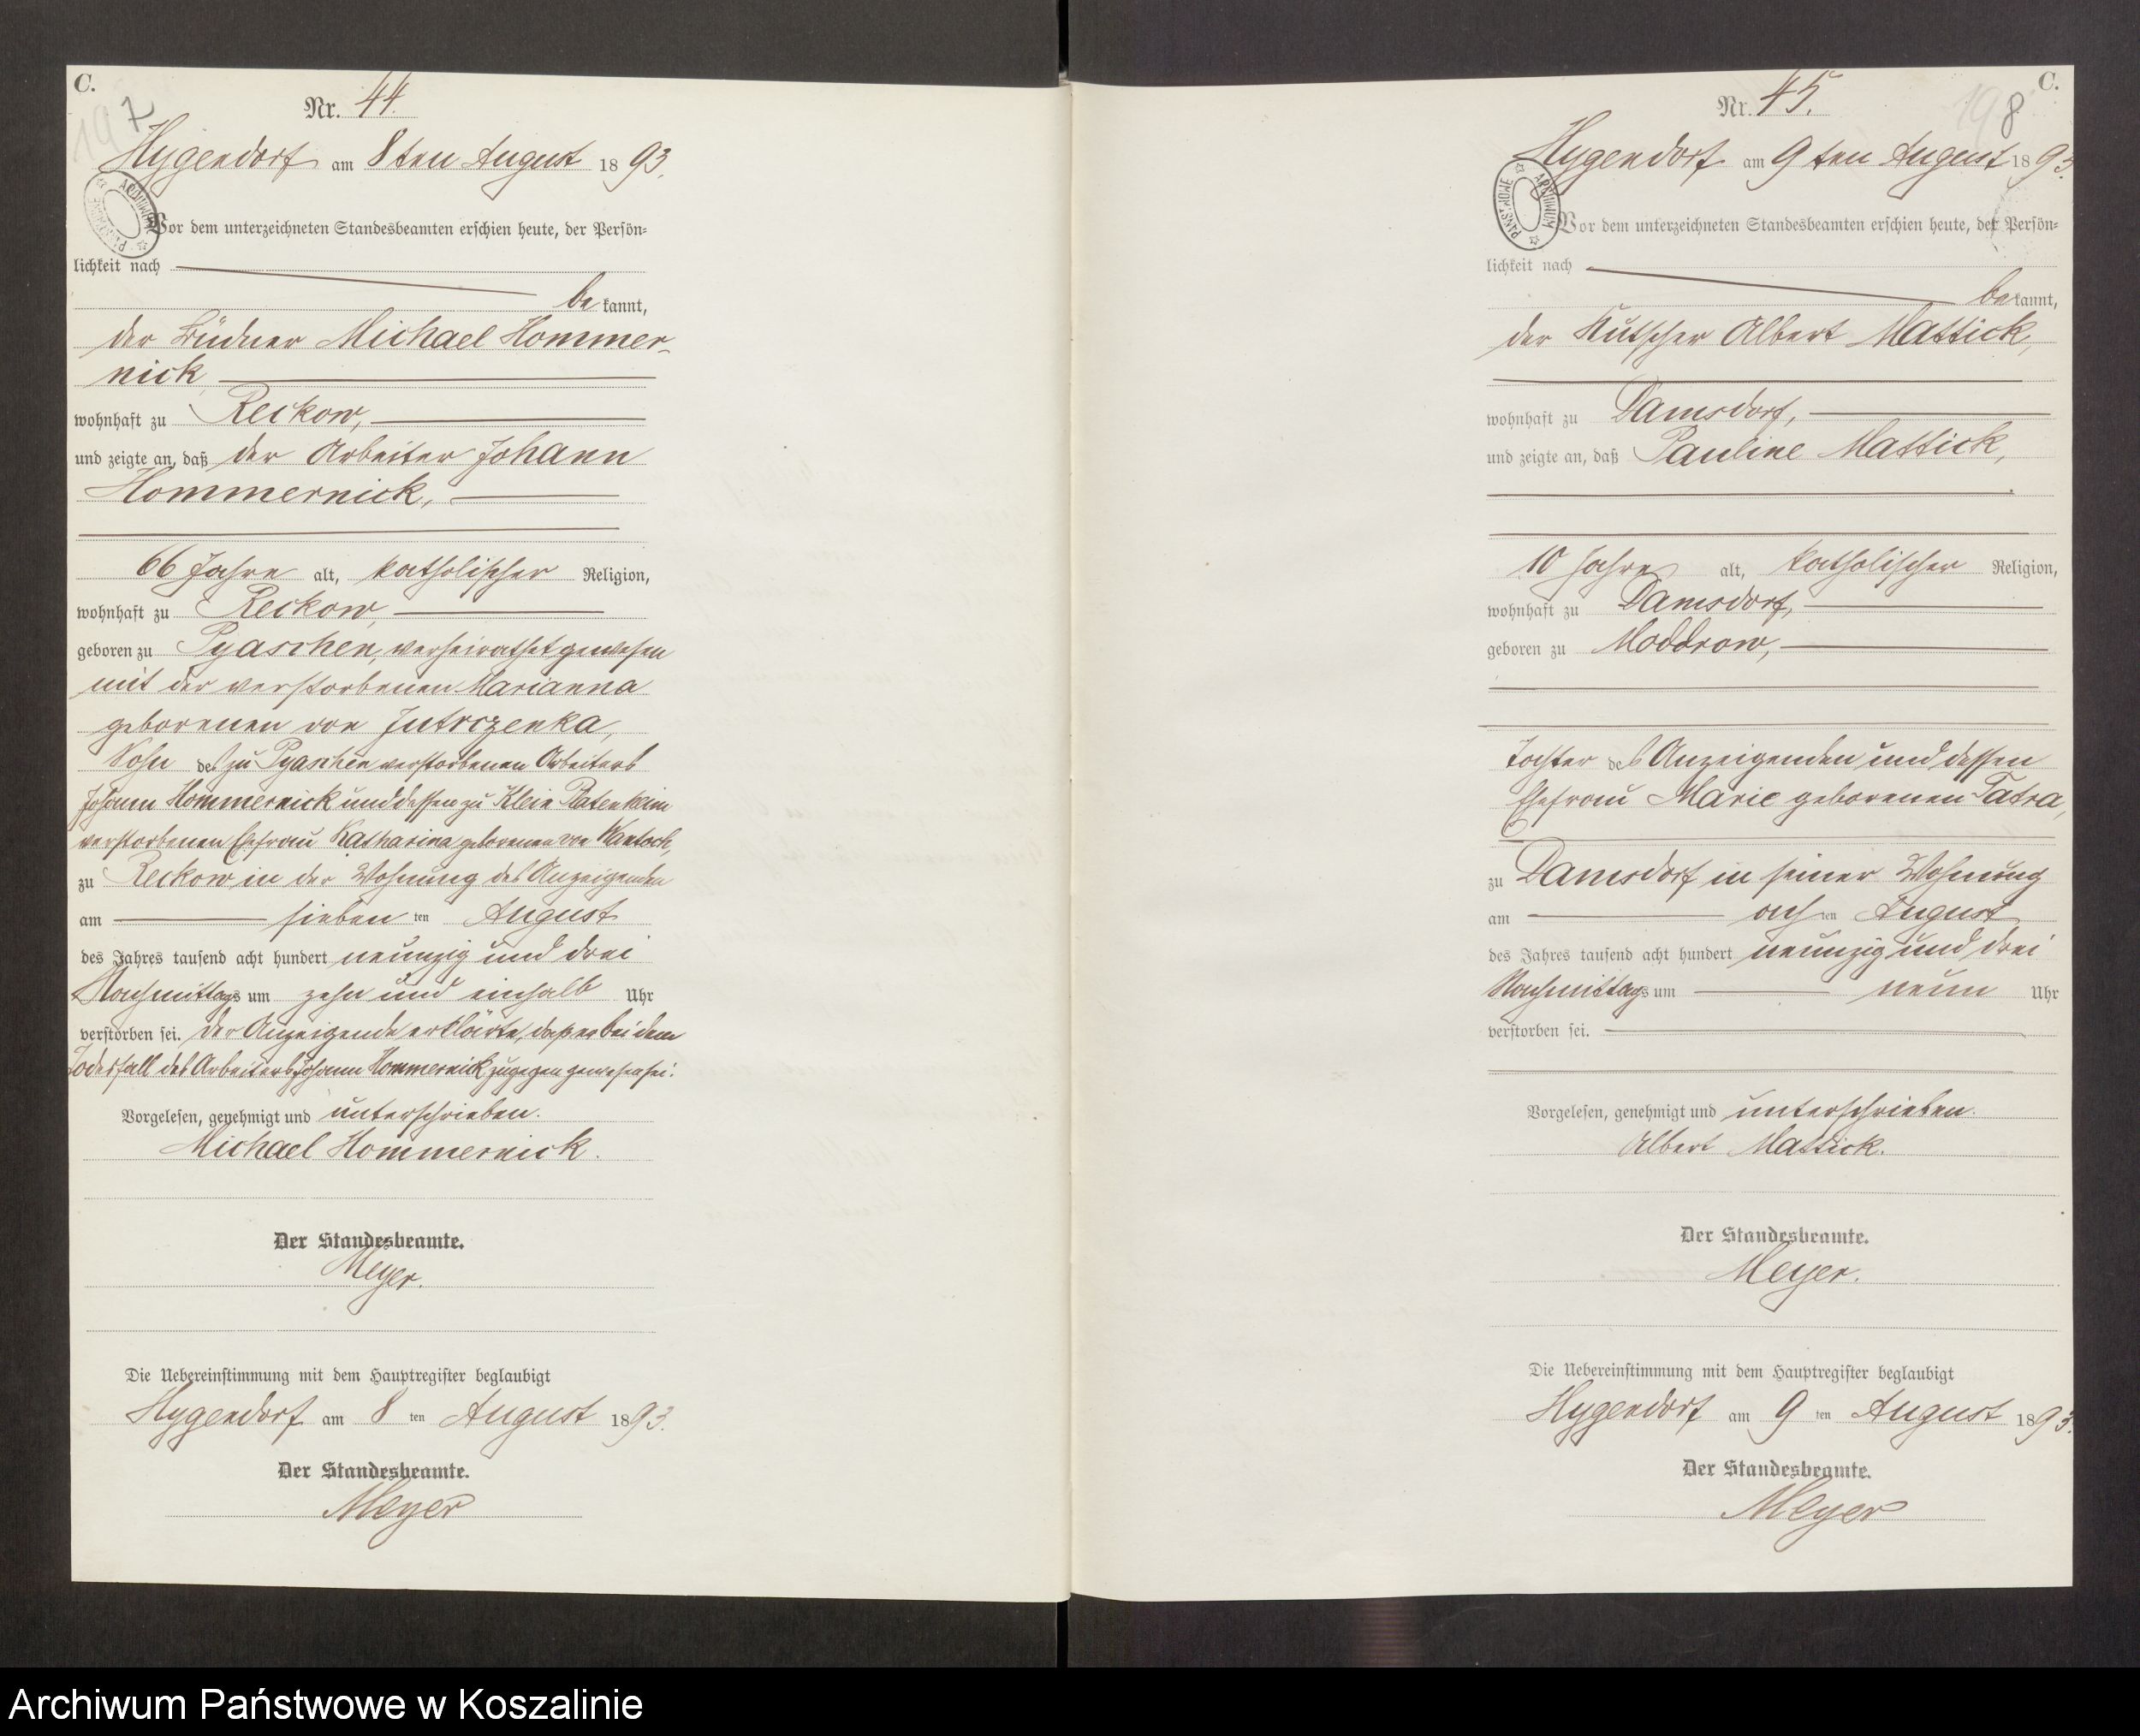 C.
197
Nr. 44.
Hygendorf am 8ten August 1893.
Vor dem unterzeichneten Standesbeamten erschien heute, der Persön=
lichkeit nach
bekannt,
der Büdner Michael Hommer-
nick
wohnhaft zu Reckow,
und zeigte an, daß der Arbeiter Johann
Hommernick,
66 Jahre alt, katholischer Religion,
wohnhaft zu Reckow,
geboren zu Pyaschen, verheirathet gewesen
mit der verstorbenen Marianna
geborenen von Jutrczenka,
Sohn des zu Pyaschen verstorbenen Arbeiters
Johann Hommernick und dessen zu Klein Platenheim
verstorbenen Ehefrau Katharina geborenen von Wantoch,
zu Reckow in der Wohnung des Anzeigenden
am sieben ten August
des Jahres tausend acht hundert neunzig und drei
Nachmittags um zehn und einhalb Uhr
verstorben sei. Der Anzeigende erklärte, daß er bei dem
Todesfall des Arbeiters Johann Hommernick zugegen gewesen sei.
Vorgelesen, genehmigt und unterschrieben.
Michael Hommernick.
Der Standesbeamte.
Meyer.
Die Uebereinstimmung mit dem Hauptregister beglaubigt
Hygendorf am 8 ten August 1893.
Der Standesbeamte.
Meyer
ARCHIWUM PAŃSTWOWE
C.
198
Nr. 45.
Hygendorf am 9ten August 1893.
Vor dem unterzeichneten Standesbeamten erschien heute, der Persön=
lichkeit nach
bekannt,
der Kutscher Albert Mattick,
wohnhaft zu Damsdorf,
und zeigte an, daß Pauline Mattick,
10 Jahre alt, katholischer Religion,
wohnhaft zu Damsdorf,
geboren zu Moddrow,
Tochter des Anzeigenden und dessen
Ehefrau Marie geborenen Tatra,
zu Damsdorf in seiner Wohnung
am ach ten August
des Jahres tausend acht hundert neunzig und drei
Nachmittags um neun Uhr
verstorben sei.
Vorgelesen, genehmigt und unterschrieben.
Albert Mattick.
Der Standesbeamte.
Meyer.
Die Uebereinstimmung mit dem Hauptregister beglaubigt
Hygendorf am 9 ten August 1893.
Der Standesbeamte.
Meyer
ARCHIWUM PAŃSTWOWE
Archiwum Państwowe w Koszalinie